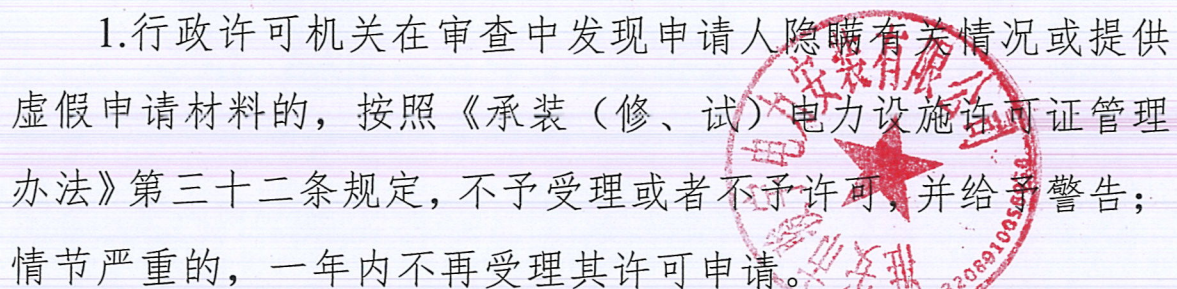 1.行政许可机关在审查中发现申请人隐瞒有关情况或提供
虚假申请材料的，按照《承装（修、试）电力设施许可证管理
办法》第三十二条规定，不予受理或者不予许可，并给予警告；
情节严重的，一年内不再受理其许可申请。
电力安装有限公司